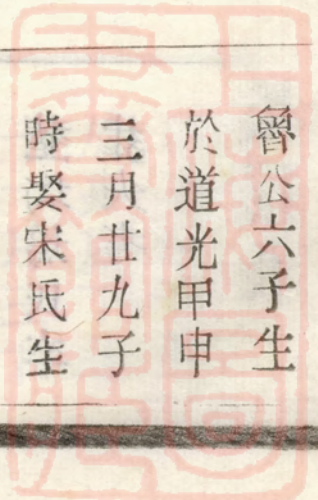 魯公六子生
於道光甲申
三月廿九子
時娶宋氏生